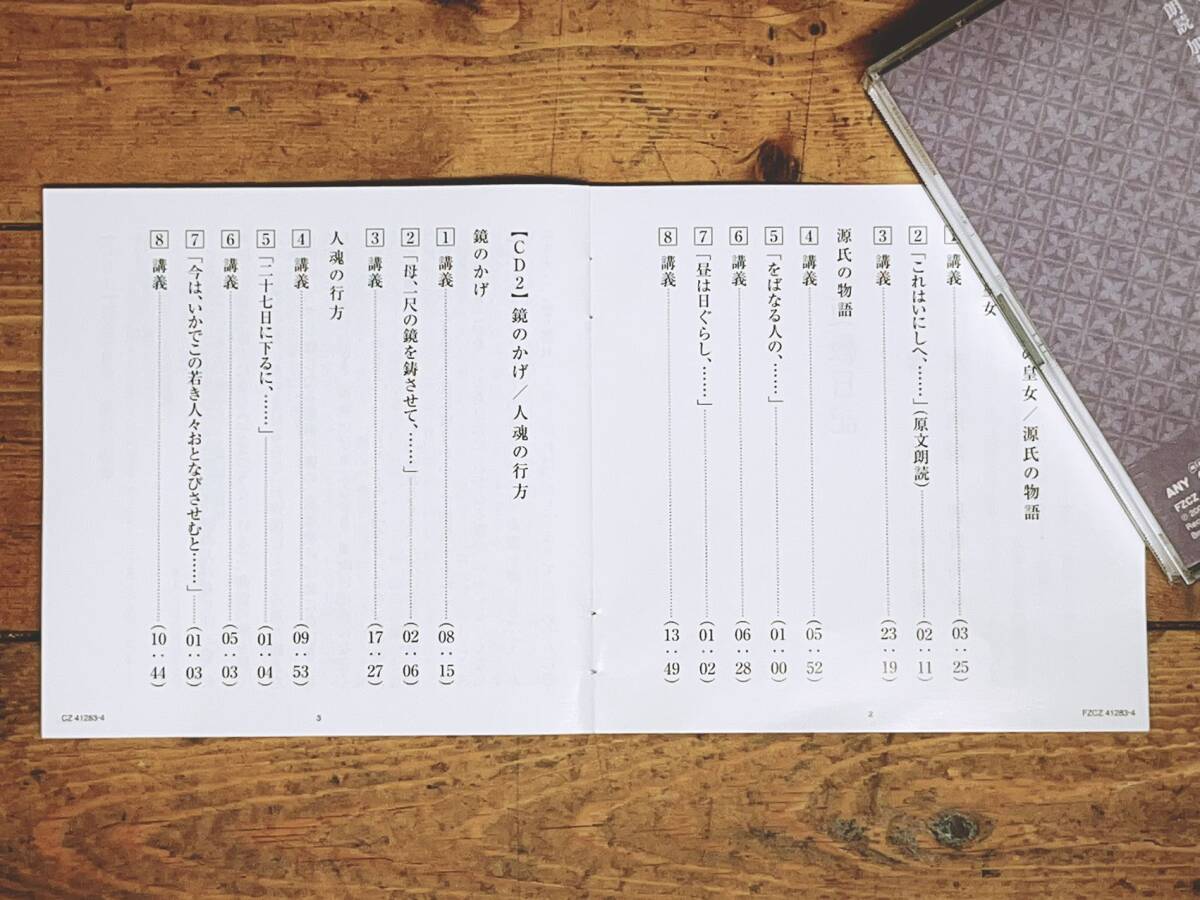 の皇女／源氏の物語
女
講義 (03:25)
2 「これはいにしへ、……」(原文朗読) (02:11)
3 講義 (23:19)
源氏の物語
4 講義 (05:52)
5 「をばなる人の、……」 (01:00)
6 講義 (06:28)
7 「昼は日ぐらし、……」 (01:02)
8 講義 (13:49)
2
FZCZ 41283-4
【CD2】鏡のかげ／人魂の行方
鏡のかげ
1 講義 (08:15)
2 「母、一尺の鏡を鋳させて、……」 (02:06)
3 講義 (17:27)
人魂の行方
4 講義 (09:53)
5 「二十七日に下るに、……」 (01:04)
6 講義 (05:03)
7 「今は、いかでこの若き人々おとなびさせむと……」 (01:03)
8 講義 (10:44)
CZ 41283-4
3
朗読
ANY
FZCZ